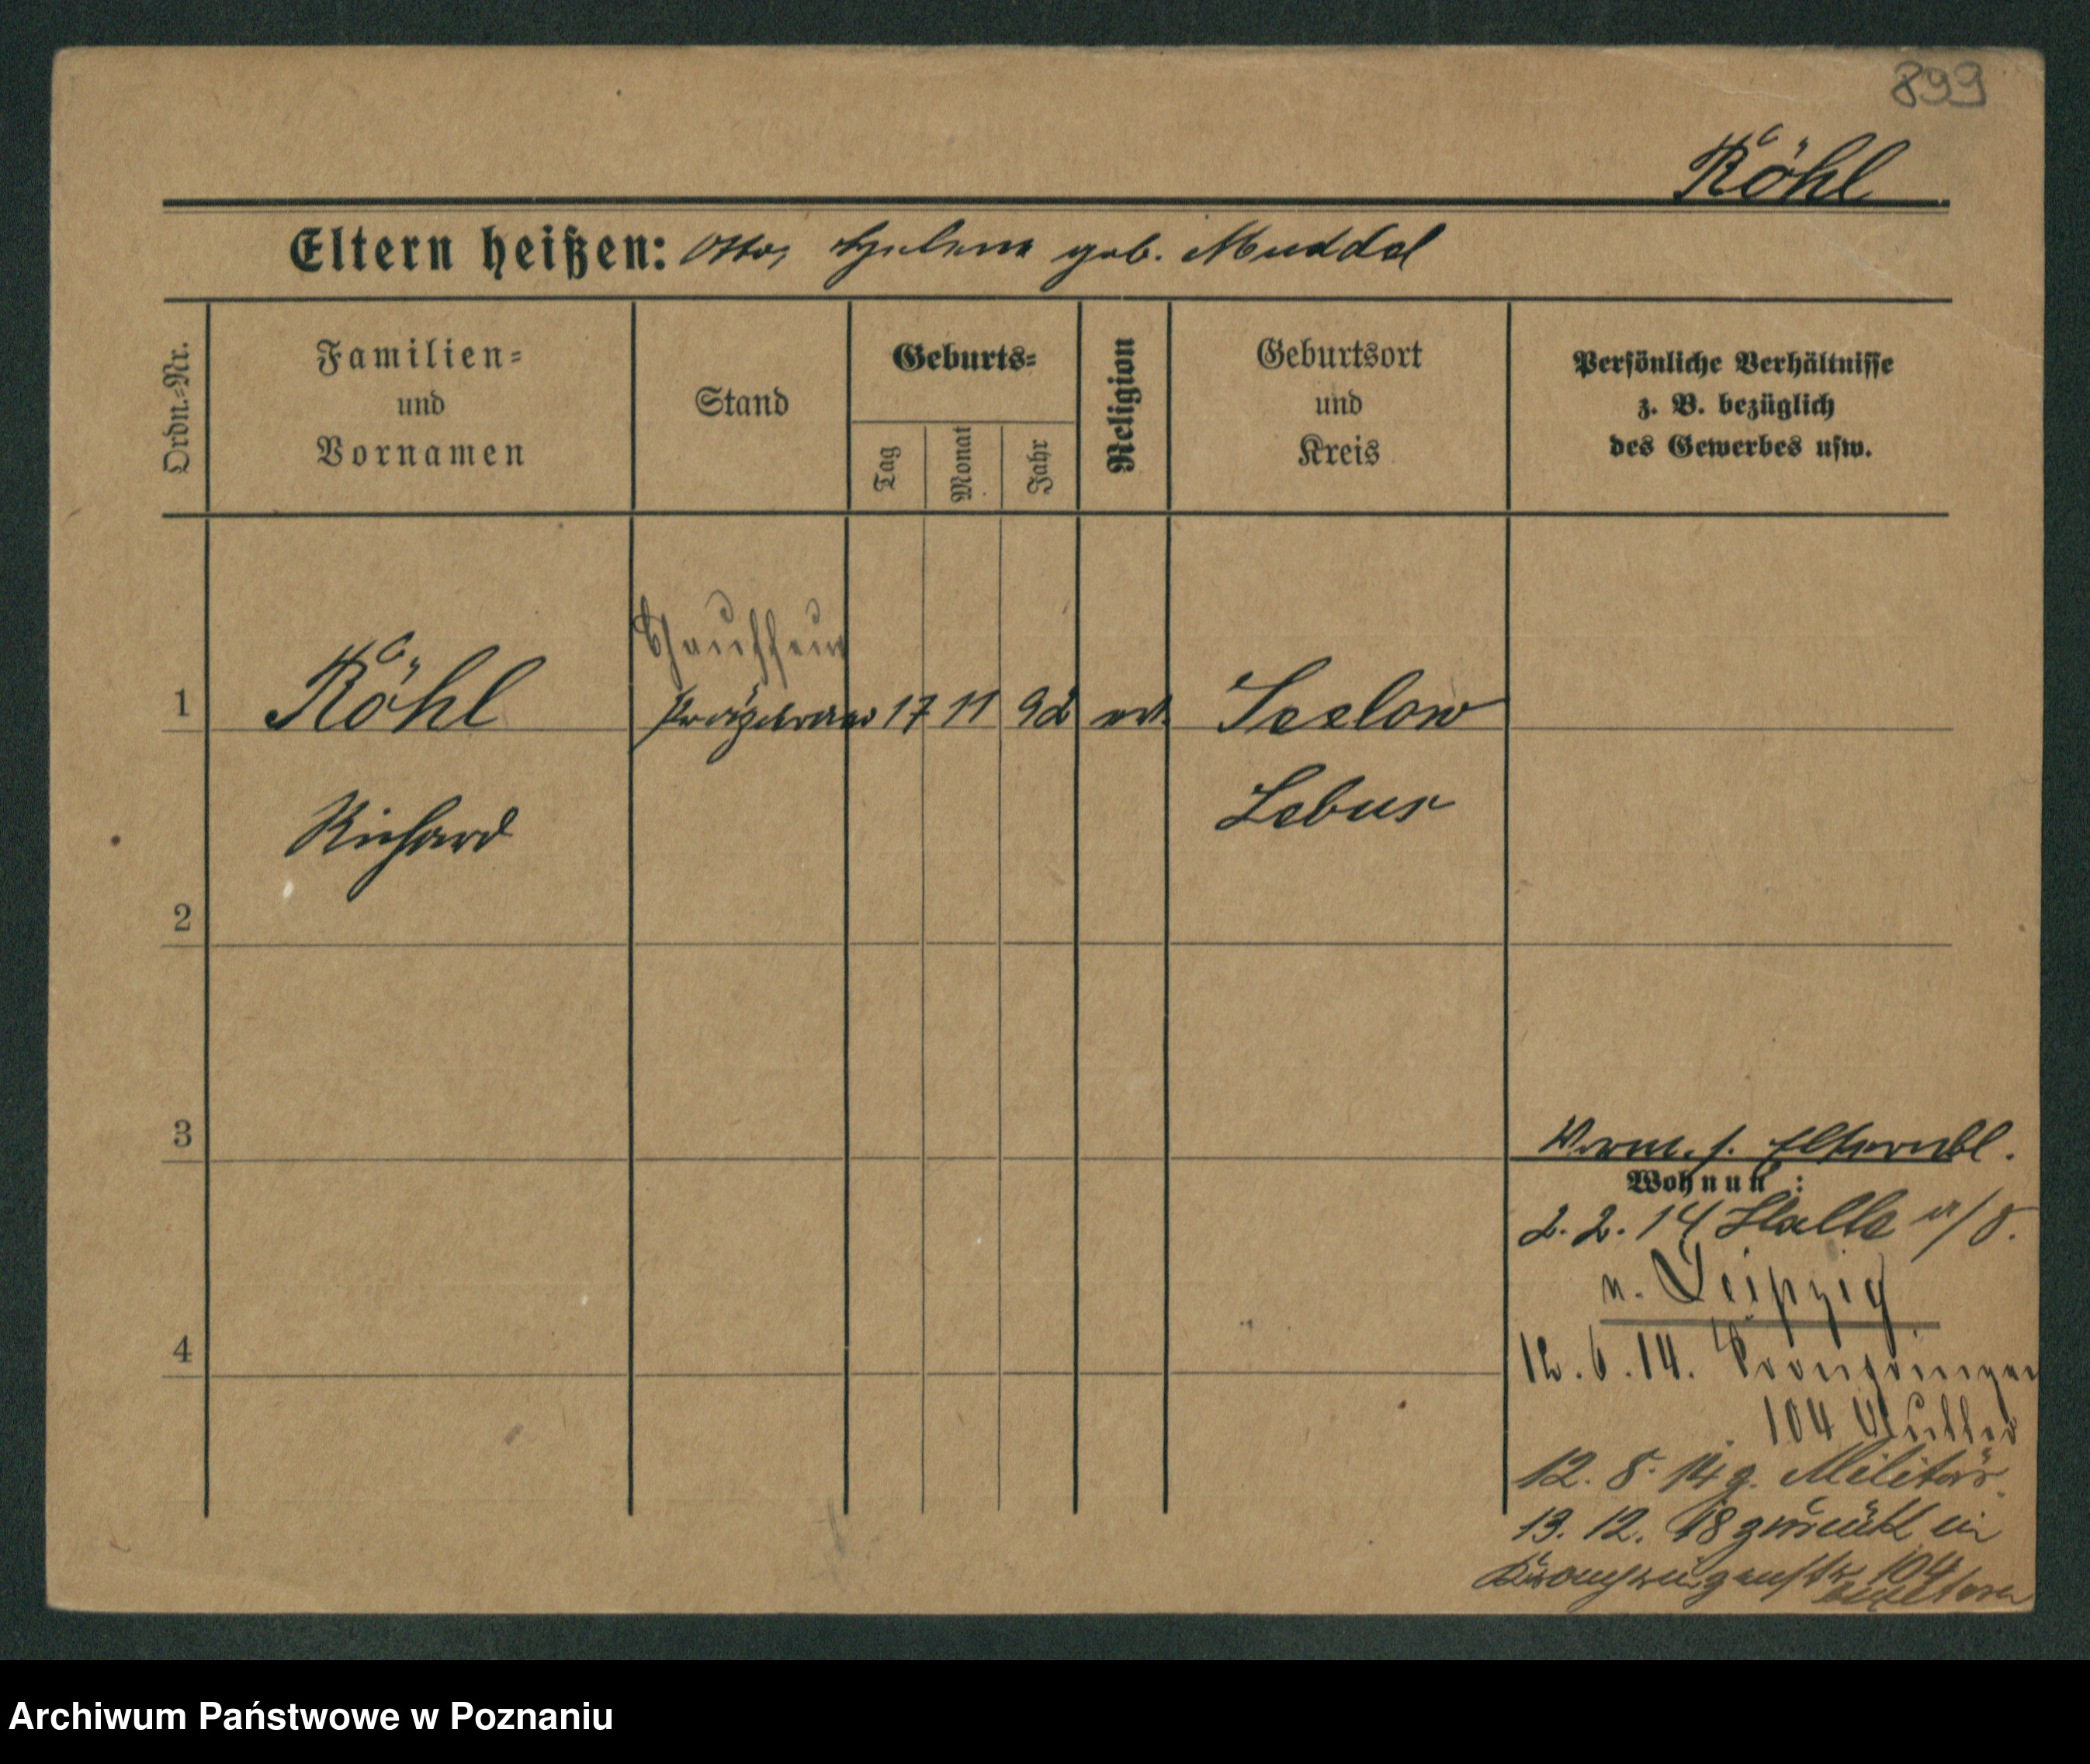 899
Röhl
Eltern heißen: Otto, Helene geb. Muddel
Ordn.-Nr.
Familien-
und
Vornamen
Stand
Geburts-
Tag
Monat
Jahr
Religion
Geburtsort
und
Kreis
Persönliche Verhältnisse
z. B. bezüglich
des Gewerbes usw.
Chauffeur
1 Röhl 17 11 92 ev. Seelow
Richard Lebus
2
3
Verm. s. Elternbl.
Wohnung:
2. 2. 14 Halle a/S.
n. Leipzig
4
12. 6. 14. Kronprinzen
104 Mutter
12. 8. 14 z. Militär.
13. 12. 18 zurück in
Kronprinzenstr. 104
Archiwum Państwowe w Poznaniu